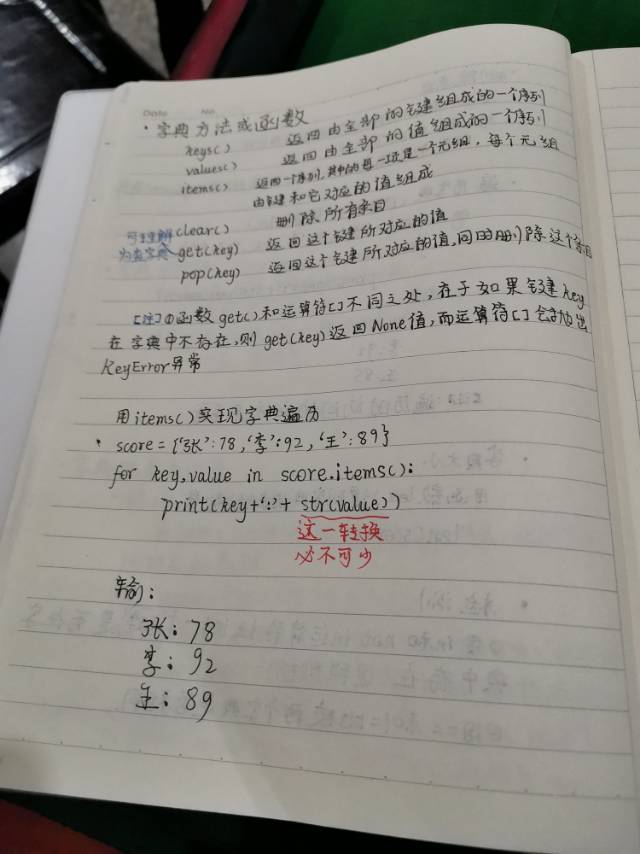 Date No
·字典方法或函数
keys() 返回由全部的键组成的一个序列
values() 返回由全部的值组成的一个序列
items() 返回一个序列,其中的每一项是一个元组,每个元组
由键和它对应的值组成
clear() 删除所有条目
可理解为查字典 get(key) 返回这个键所对应的值
pop(key) 返回这个键所对应的值,同时删除这个条目
[注]①函数get()和运算符[]不同之处,在于如果键key
在字典中不存在,则get(key)返回None值,而运算符[]会抛出
KeyError异常
用items()实现字典遍历
· score={'张':78,'李':92,'王':89}
for key,value in score.items():
print(key+':'+ str(value))
这一转换
必不可少
输:
张:78
李:92
王:89